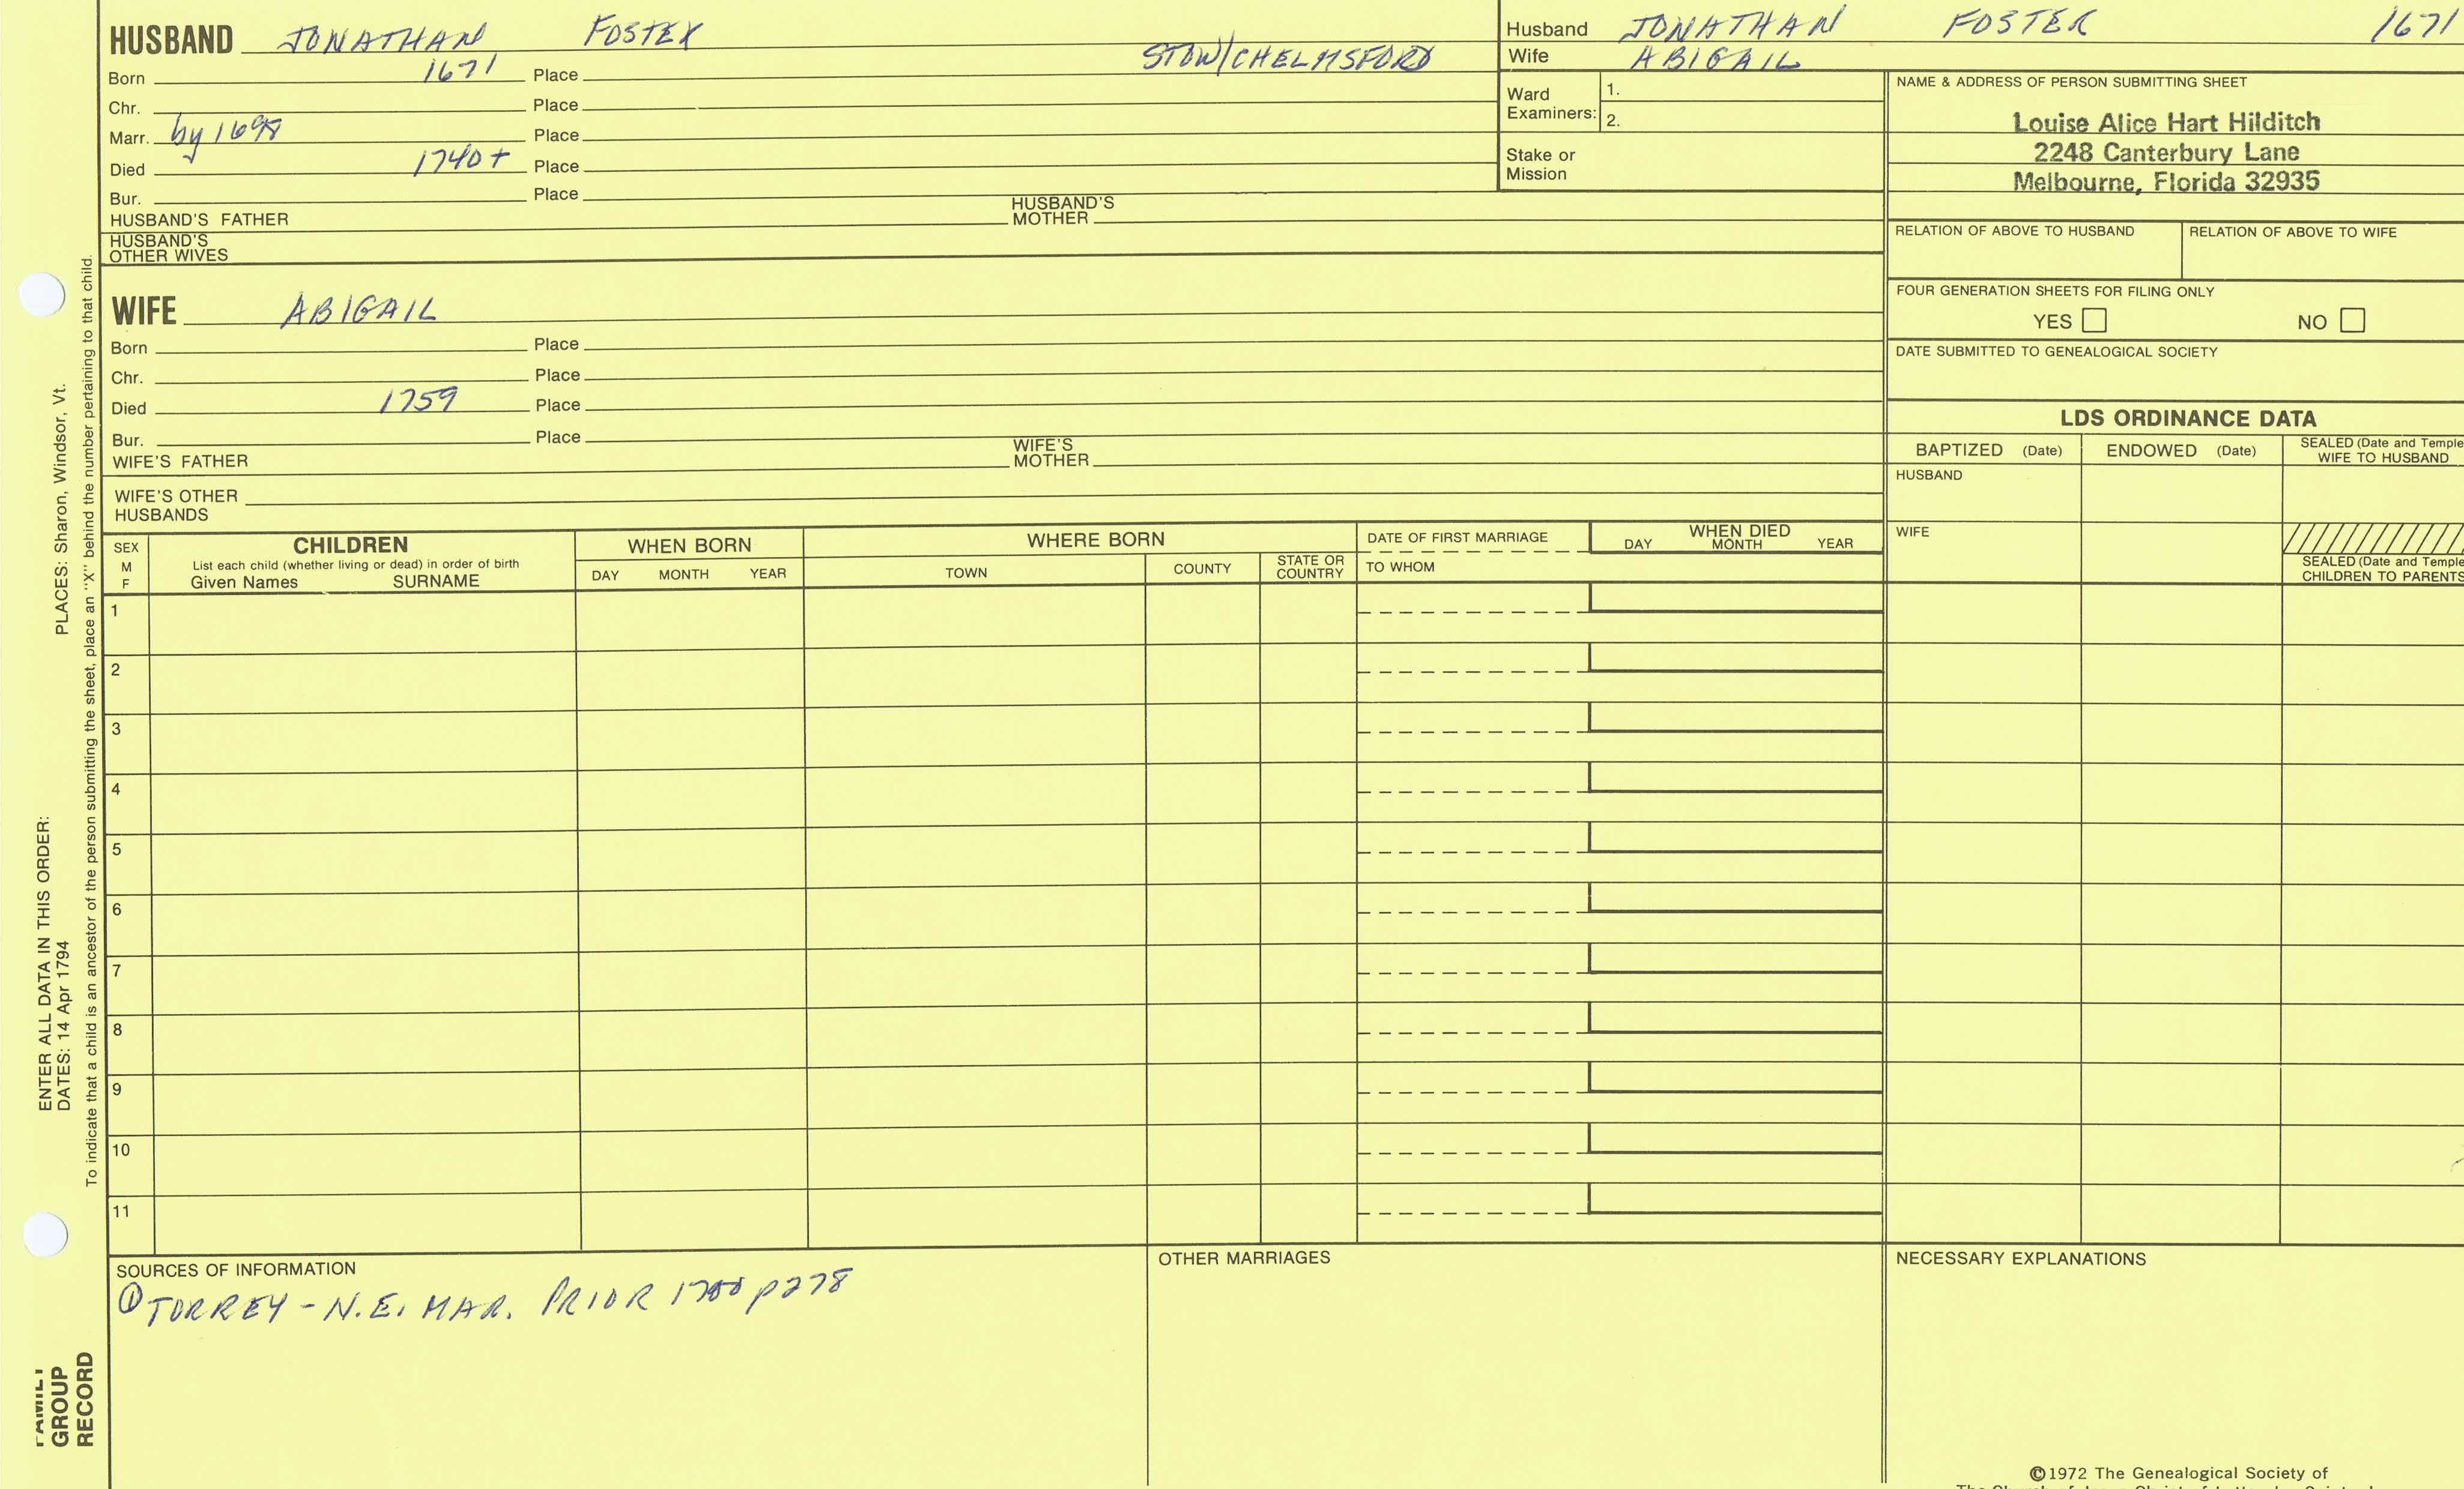 HUSBAND JONATHAN FOSTER
STOW/CHELMSFORD
Born 1671 Place
Chr. Place
Marr. by 1698 Place
Died 1740+ Place
Bur. Place
HUSBAND'S FATHER HUSBAND'S MOTHER
HUSBAND'S OTHER WIVES
WIFE ABIGAIL
Born Place
Chr. Place
Died 1759 Place
Bur. Place
WIFE'S FATHER WIFE'S MOTHER
WIFE'S OTHER HUSBANDS
Husband JONATHAN FOSTER 1671
Wife ABIGAIL
Ward Examiners: 1.
2.
Stake or Mission
NAME & ADDRESS OF PERSON SUBMITTING SHEET
Louise Alice Hart Hilditch
2248 Canterbury Lane
Melbourne, Florida 32935
RELATION OF ABOVE TO HUSBAND RELATION OF ABOVE TO WIFE
FOUR GENERATION SHEETS FOR FILING ONLY
YES NO
DATE SUBMITTED TO GENEALOGICAL SOCIETY
LDS ORDINANCE DATA
BAPTIZED (Date) ENDOWED (Date) SEALED (Date and Temple
WIFE TO HUSBAND
HUSBAND
WIFE
SEALED (Date and Temple
CHILDREN TO PARENTS
SEX
M
F
CHILDREN
List each child (whether living or dead) in order of birth
Given Names SURNAME
WHEN BORN
DAY MONTH YEAR
WHERE BORN
TOWN COUNTY STATE OR COUNTRY
DATE OF FIRST MARRIAGE
TO WHOM
WHEN DIED
DAY MONTH YEAR
1
2
3
4
5
6
7
8
9
10
11
SOURCES OF INFORMATION
① TORREY - N.E. MAR. PRIOR 1700 p278
OTHER MARRIAGES
NECESSARY EXPLANATIONS
©1972 The Genealogical Society of
PLACES: Sharon, Windsor, Vt.
ENTER ALL DATA IN THIS ORDER:
DATES: 14 Apr 1794
To indicate that a child is an ancestor of the person submitting the sheet, place an "X" behind the number pertaining to that child.
FAMILY
GROUP
RECORD